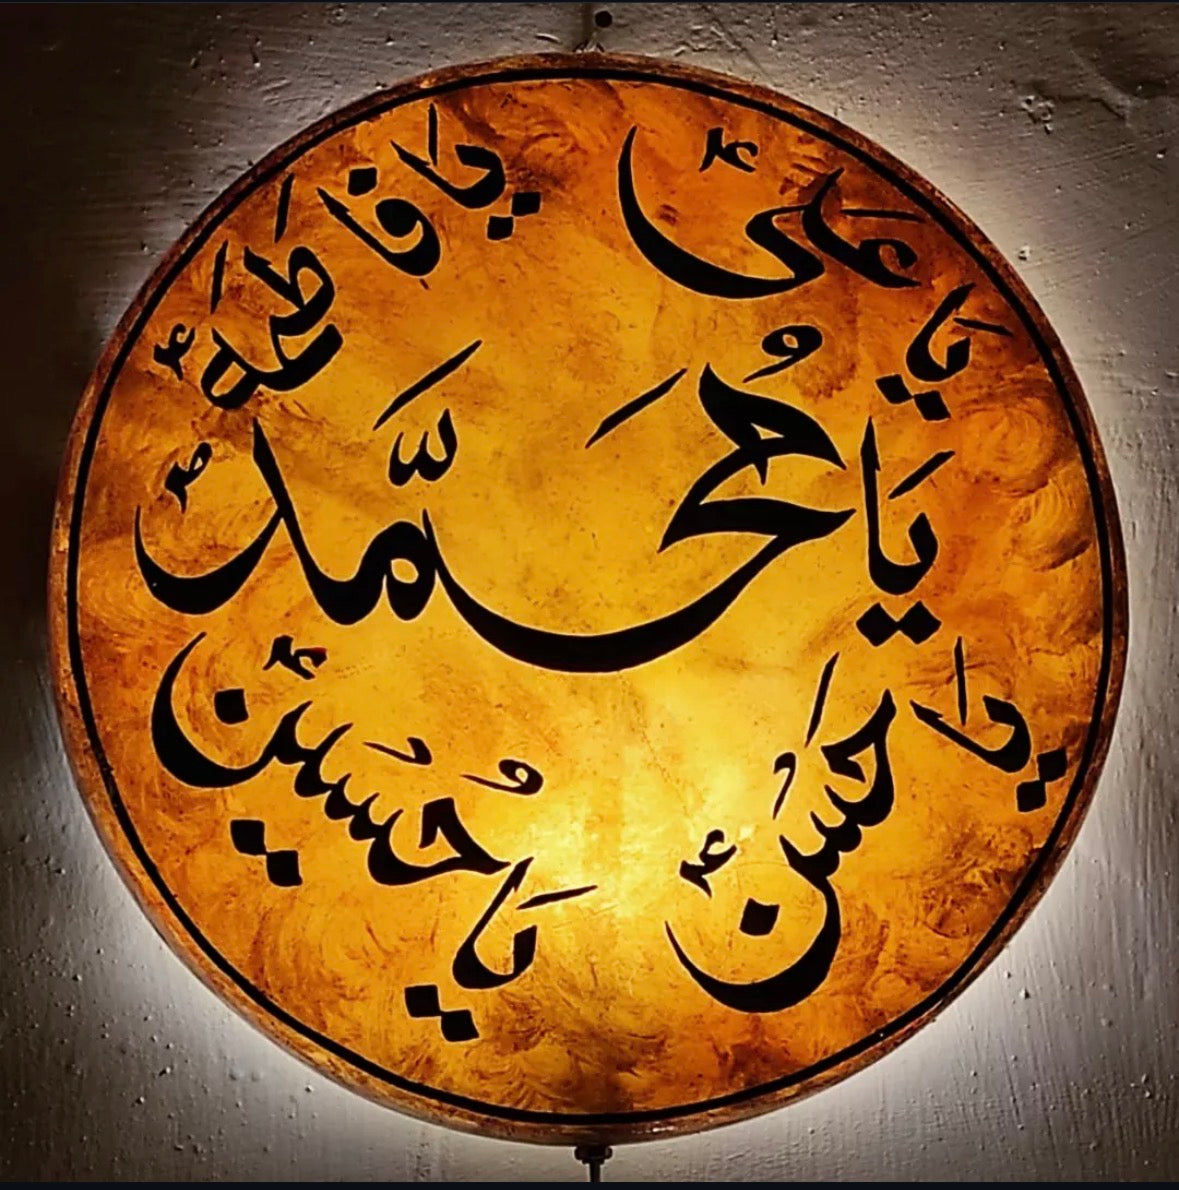 يَا مُحَمَّد ؐ
يَا عَلیؑ
يَا فَاطِمَهؑ
يَا حَسَنؑ
يَا حُسَينؑ